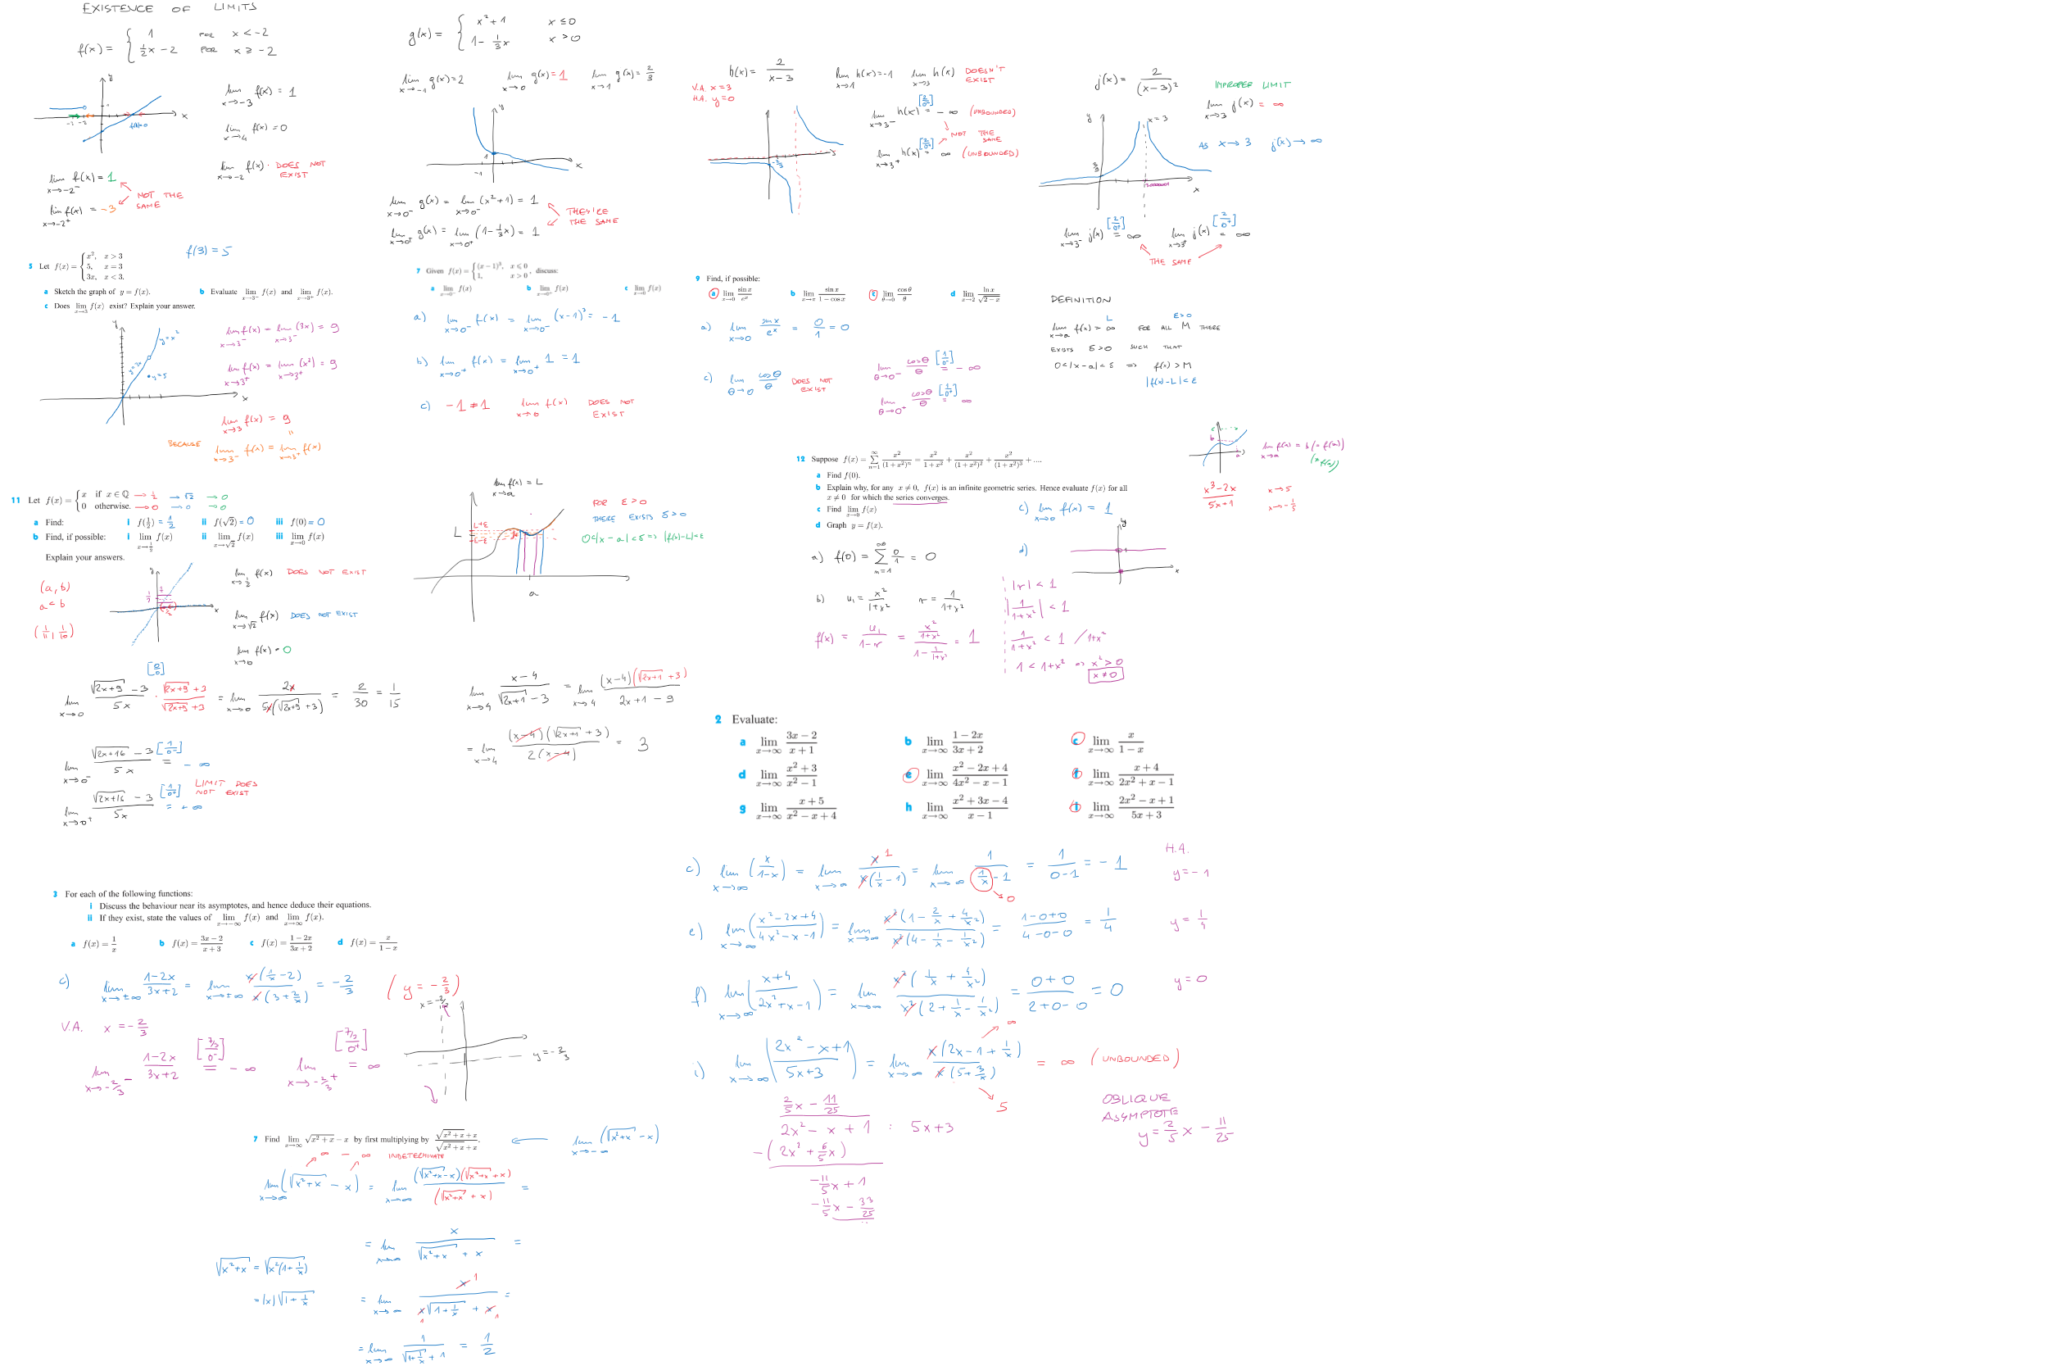 EXISTENCE OF LIMITS
f(x) = { 1 FOR x < -2
1/2 x - 2 FOR x ≥ -2
lim x→-3 f(x) = 1
lim x→4 f(x) = 0
lim x→-2 f(x) · DOES NOT EXIST
lim x→-2⁻ f(x) = 1
NOT THE SAME
lim x→-2⁺ f(x) = -3
g(x) = { x² + 1 x ≤ 0
1 - 1/3 x x > 0
lim x→-1 g(x) = 2
lim x→0 g(x) = 1
lim x→1 g(x) = 2/3
lim x→0⁻ g(x) = lim x→0⁻ (x² + 1) = 1
THEY'RE THE SAME
lim x→0⁺ g(x) = lim x→0⁺ (1 - 1/3 x) = 1
h(x) = 2/(x - 3)
V.A. x = 3
H.A. y = 0
lim x→1 h(x) = -1
lim x→3 h(x) DOESN'T EXIST
lim x→3⁻ h(x) [2/0⁻] = -∞ (UNBOUNDED)
NOT THE SAME
lim x→3⁺ h(x) [2/0⁺] = ∞ (UNBOUNDED)
j(x) = 2/(x - 3)²
IMPROPER LIMIT
lim x→3 j(x) = ∞
AS x → 3 j(x) → ∞
x = 3
lim x→3⁻ j(x) [2/0⁺] = ∞
lim x→3⁺ j(x) [2/0⁺] = ∞
THE SAME
5 Let f(x) = { x², x > 3
5, x = 3
3x, x < 3.
f(3) = 5
a Sketch the graph of y = f(x).
b Evaluate lim x→3⁻ f(x) and lim x→3⁺ f(x).
c Does lim x→3 f(x) exist? Explain your answer.
lim x→3⁻ f(x) = lim x→3⁻ (3x) = 9
lim x→3⁺ f(x) = lim x→3⁺ (x²) = 9
lim x→3 f(x) = 9
BECAUSE lim x→3⁻ f(x) = lim x→3⁺ f(x)
7 Given f(x) = { (x - 1)³, x ≤ 0
1, x > 0, discuss:
a lim x→0⁻ f(x)
b lim x→0⁺ f(x)
c lim x→0 f(x)
a) lim x→0⁻ f(x) = lim x→0⁻ (x-1)³ = -1
b) lim x→0⁺ f(x) = lim x→0⁺ 1 = 1
c) -1 ≠ 1 lim x→0 f(x) DOES NOT EXIST
9 Find, if possible:
a lim x→0 sin x/eˣ
b lim x→π sin x/(1 - cos x)
c lim θ→0 cos θ/θ
d lim x→2 ln x/√(2 - x)
a) lim x→0 sin x/eˣ = 0/1 = 0
c) lim θ→0 cosθ/θ DOES NOT EXIST
lim θ→0⁻ cosθ/θ [1/0⁻] = -∞
lim θ→0⁺ cosθ/θ [1/0⁺] = ∞
DEFINITION
L ε>0
lim x→a f(x) = ∞ FOR ALL M THERE
EXISTS δ>0 SUCH THAT
0<|x-a|<δ ⇒ f(x) > M
|f(x)-L|<ε
lim x→a f(x) = b (= f(a))
(≠ f(a))
(x³ - 2x)/(5x + 1) x→5
x→-1/5
11 Let f(x) = { x if x ∈ ℚ → 1/2 → √2 → 0
0 otherwise. → 0 → 0 → 0
a Find: i f(1/2) = 1/2 ii f(√2) = 0 iii f(0) = 0
b Find, if possible: i lim x→1/2 f(x) ii lim x→√2 f(x) iii lim x→0 f(x)
Explain your answers.
(a, b)
a < b
(1/11, 1/10)
lim x→1/2 f(x) DOES NOT EXIST
lim x→√2 f(x) DOES NOT EXIST
lim x→0 f(x) = 0
lim x→a f(x) = L
FOR ε>0
THERE EXISTS δ>0
0<|x-a|<δ ⇒ |f(x)-L|<ε
L L+ε L-ε
a
12 Suppose f(x) = ∑ n=1 ∞ x²/(1 + x²)ⁿ = x²/(1 + x²) + x²/(1 + x²)² + x²/(1 + x²)³ + ....
a Find f(0).
b Explain why, for any x ≠ 0, f(x) is an infinite geometric series. Hence evaluate f(x) for all
x ≠ 0 for which the series converges.
c Find lim x→0 f(x)
d Graph y = f(x).
c) lim x→0 f(x) = 1
a) f(0) = ∑ n=1 ∞ 0/1 = 0
d)
b) u₁ = x²/(1+x²) r = 1/(1+x²)
f(x) = u₁/(1-r) = (x²/(1+x²))/(1 - 1/(1+x²)) = 1
|r| < 1
|1/(1+x²)| < 1
1/(1+x²) < 1 / 1+x²
1 < 1+x² ⇒ x² > 0
x ≠ 0
[0/0]
lim x→0 (√(2x+9) - 3)/5x · (√(2x+9) + 3)/(√(2x+9) + 3) = lim x→0 2x/(5x(√(2x+9) + 3)) = 2/30 = 1/15
lim x→4 (x-4)/(√(2x+1) - 3) = lim x→4 (x-4)(√(2x+1) + 3)/(2x+1-9)
= lim x→4 (x-4)(√(2x+1) + 3)/(2(x-4)) = 3
lim x→0⁻ (√(2x+16) - 3)/5x [1/0⁻] = -∞
lim x→0⁺ (√(2x+16) - 3)/5x [1/0⁺] = +∞
LIMIT DOES NOT EXIST
2 Evaluate:
a lim x→∞ (3x - 2)/(x + 1)
b lim x→∞ (1 - 2x)/(3x + 2)
c lim x→∞ x/(1 - x)
d lim x→∞ (x² + 3)/(x² - 1)
e lim x→∞ (x² - 2x + 4)/(4x² - x - 1)
f lim x→∞ (x + 4)/(2x² + x - 1)
g lim x→∞ (x + 5)/(x² - x + 4)
h lim x→∞ (x² + 3x - 4)/(x - 1)
i lim x→∞ (2x² - x + 1)/(5x + 3)
c) lim x→∞ (x/(1-x)) = lim x→∞ x/(x(1/x - 1)) = lim x→∞ 1/(1/x - 1) = 1/(0-1) = -1
H.A.
y = -1
e) lim x→∞ ((x²-2x+4)/(4x²-x-1)) = lim x→∞ x²(1 - 2/x + 4/x²)/(x²(4 - 1/x - 1/x²)) = (1-0+0)/(4-0-0) = 1/4
y = 1/4
f) lim x→∞ ((x+4)/(2x²+x-1)) = lim x→∞ x²(1/x + 4/x²)/(x²(2 + 1/x - 1/x²)) = (0+0)/(2+0-0) = 0
y = 0
i) lim x→∞ ((2x²-x+1)/(5x+3)) = lim x→∞ x(2x-1+1/x)/(x(5+3/x)) = ∞ (UNBOUNDED)
∞
5
2/5 x - 11/25
2x² - x + 1 : 5x+3
-(2x² + 6/5 x)
-11/5 x + 1
-11/5 x - 33/25
OBLIQUE
ASYMPTOTE
y = 2/5 x - 11/25
3 For each of the following functions:
i Discuss the behaviour near its asymptotes, and hence deduce their equations.
ii If they exist, state the values of lim x→-∞ f(x) and lim x→∞ f(x).
a f(x) = 1/x
b f(x) = (3x - 2)/(x + 3)
c f(x) = (1 - 2x)/(3x + 2)
d f(x) = x/(1 - x)
c) lim x→±∞ (1-2x)/(3x+2) = lim x→±∞ x(1/x - 2)/(x(3 + 2/x)) = -2/3 (y = -2/3)
V.A. x = -2/3
lim x→-2/3⁻ (1-2x)/(3x+2) [7/3/0⁻] = -∞
lim x→-2/3⁺ [7/3/0⁺] = ∞
x = -2/3
y = -2/3
7 Find lim x→∞ √(x² + x) - x by first multiplying by (√(x² + x) + x)/(√(x² + x) + x).
lim x→-∞ (√(x²+x) - x)
∞ - ∞ INDETERMINATE
lim x→∞ (√(x²+x) - x) = lim x→∞ (√(x²+x) - x)(√(x²+x) + x)/(√(x²+x) + x) =
= lim x→∞ x/(√(x²+x) + x) =
√(x²+x) = √(x²(1+1/x))
= |x|√(1+1/x)
= lim x→∞ x/(x√(1+1/x) + x) =
= lim x→∞ 1/(√(1+1/x) + 1) = 1/2